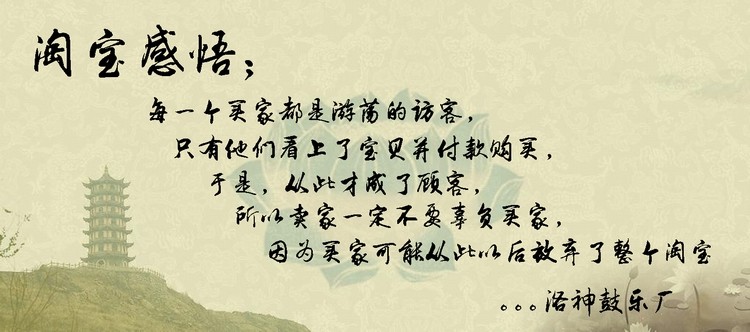 淘宝感悟；
每一个买家都是游荡的访客，
只有他们看上了宝贝并付款购买，
于是，从此才成了顾客，
所以卖家一定不要辜负买家，
因为买家可能从此以后放弃了整个淘宝
。。。洛神鼓乐厂